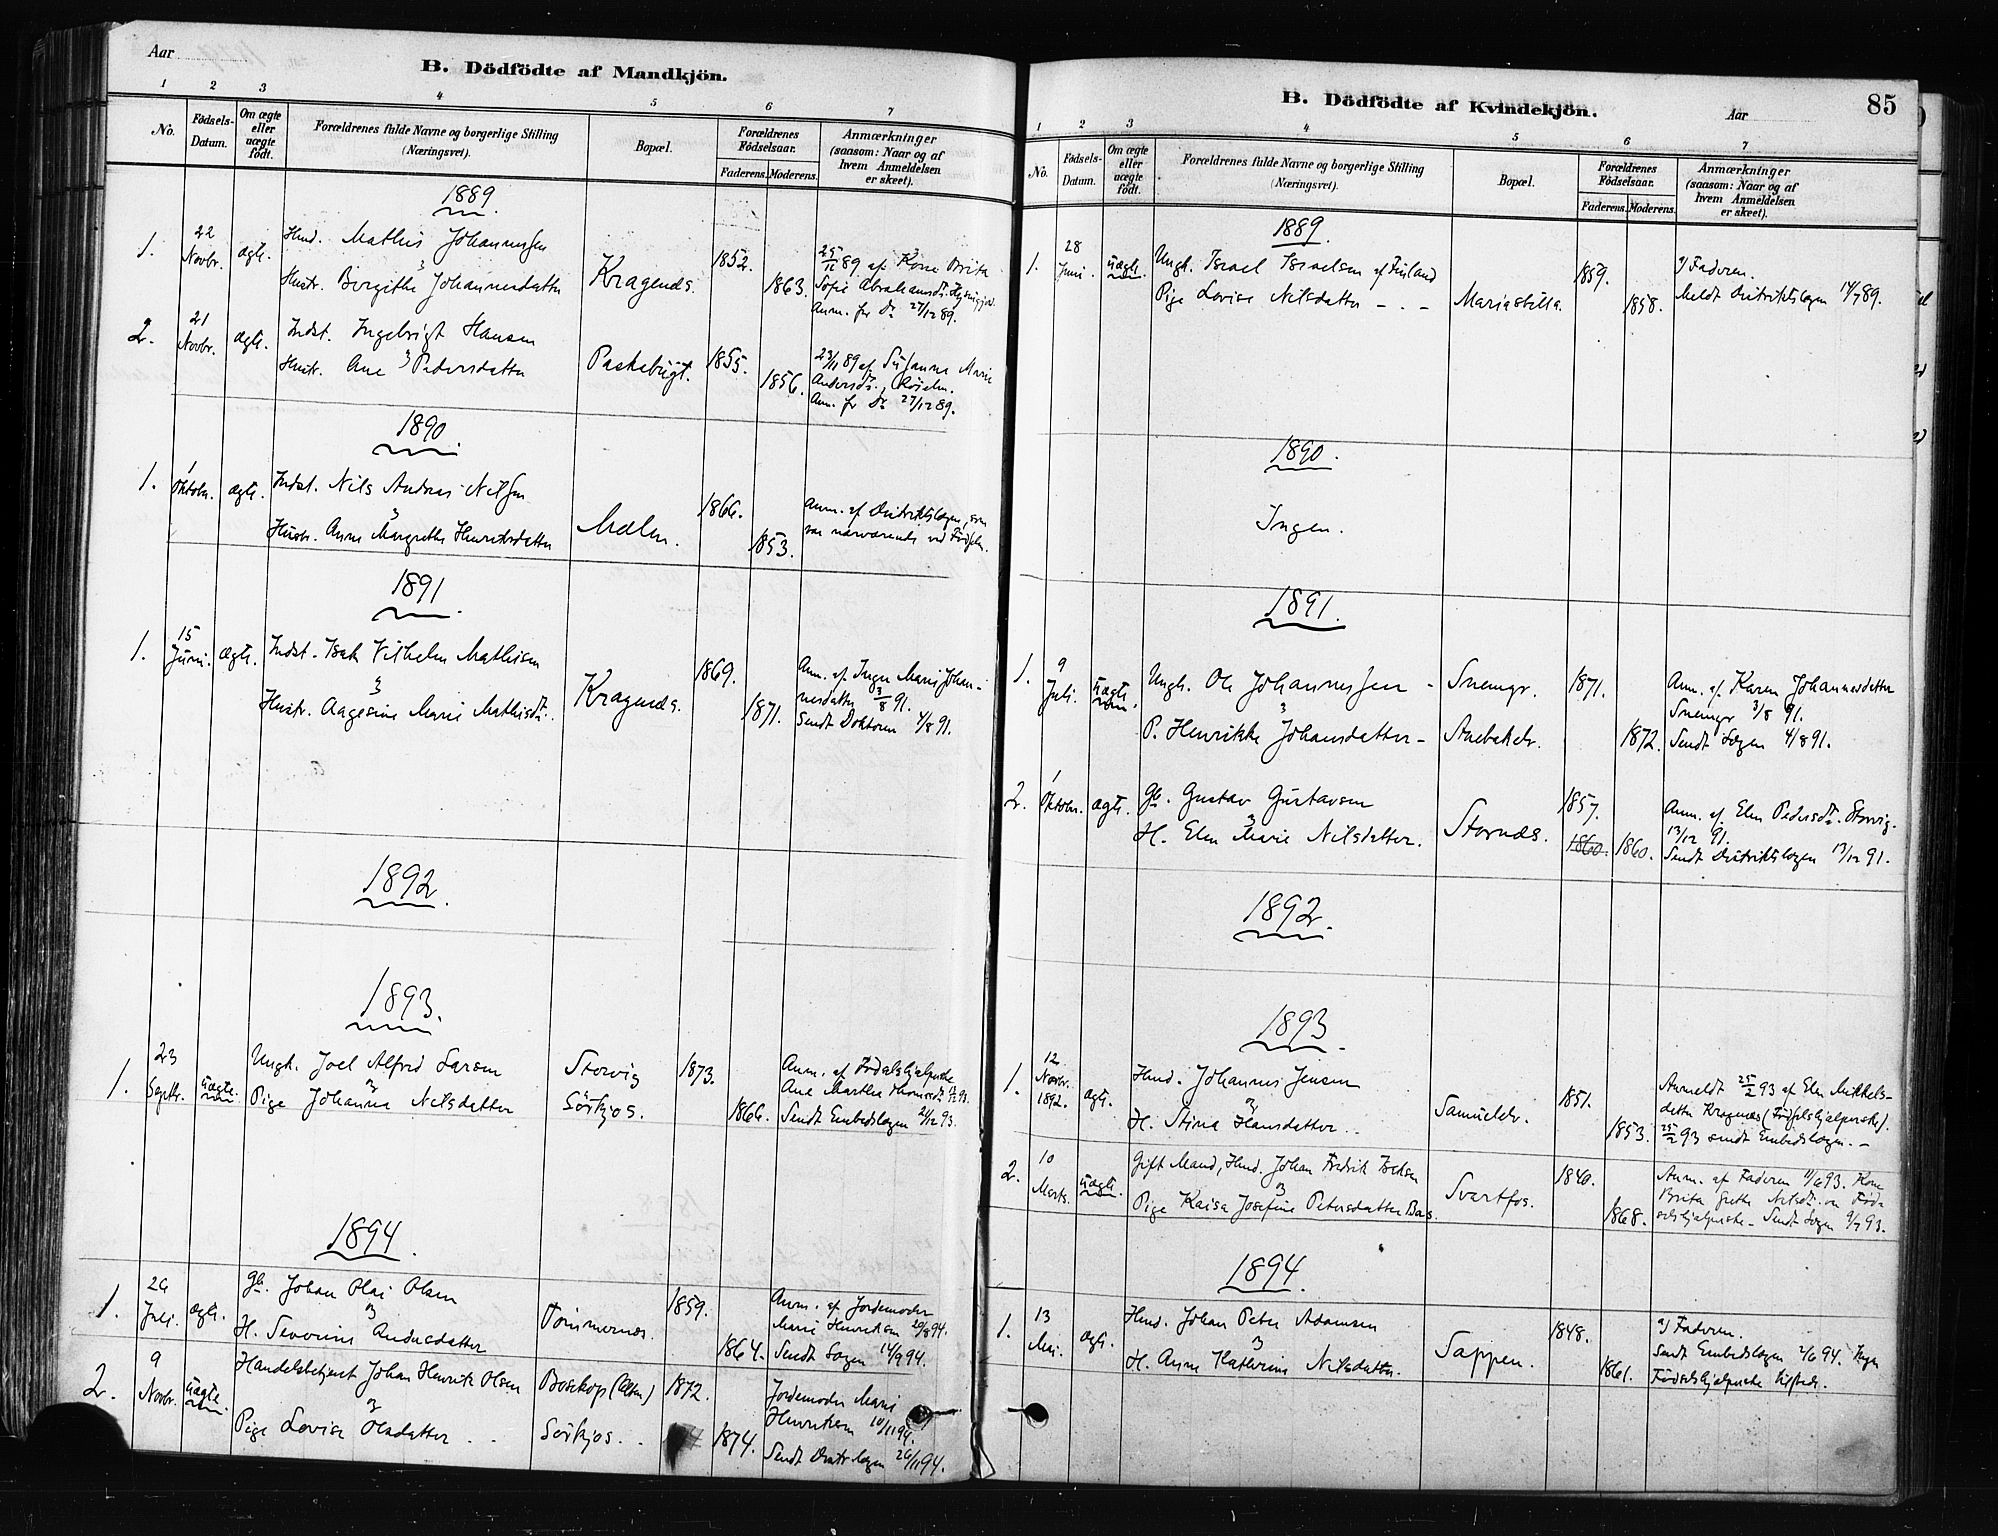 Aar
B. Dödfödte af Mandkjön.
1 2 3 4 5 6 7
No.
Födsels-Datum.
Om ægte eller uægte födt.
Forældrenes fulde Navne og borgerlige Stilling
(Næringsvei).
Bopæl.
Forældrenes Födselsaar.
Faderens. Moderens.
Anmærkninger
(saasom: Naar og af
hvem Anmeldelsen
er skeet).
1889
1. 22 Novbr. ægte. Husd. Mathis Johannessen
&
Hustr. Borgithe Johannesdatter
Kragenæs. 1852. 1863.
af Kone Brita
Sofie Abrahamsdtr.
Anm. fr Dr. 27/12 89.
2. 21 Novbr. ægte. Indst. Ingebrigt Hansen
&
Hustr. Ane Pedersdatter
Paskebugt. 1855. 1856.
23/11 89 af Susanne Marie
Andersdtr., Röielen.
Anm. fr Dr. 27/12 89.
1890
1. 1 Oktober. ægte. Indst. Nils Andreas Nilsen
&
Hustr. Anne Margrethe Henriksdatter
Mælen. 1866. 1853.
Anm. af Distriktslægen, som
var nærværende ved Fødselen.
1891
1. 15 Juni. ægte. Indst. Isak Vilhelm Mathisen
&
Hustr. Aagesine Marie Mathisdtr.
Kragenæs. 1869. 1871.
Anm. af Inger Marie Johan-
nesdatter 3/8 91.
Sendt Doktoren 4/8 91.
1892
1893.
1. 23 Septbr. uægte Ungk. Joel Alfred Larsen
&
Pige Johanna Nilsdatter
Storvig
Sörkjos. 1873. 1866.
Anm. af Fødselshjælperske
Ane Marthea Thomasdtr.
Sendt Embedslægen 21/12 93.
1894
1. 26 Juli. ægte. Gb. Johan Olai Olsen
&
H. Severine Andreasdatter
Tömmernes. 1859. 1864.
Anm. af Jordemoder
Marie Henriksen 20/8 94.
Sendt Lægen 14/9 94.
2. 9 Novbr. uægte Handelsbetjent Johan Henrik Olsen
&
Pige Lovise Olsdatter
Bosekop (Alten)
Sörkjos. 1872. 1874.
Jordemoder Marie
Henriksen 10/11 94.
Sendt Distrslægen 26/11 94.
B. Dödfödte af Kvindekjön.
Aar
85
1 2 3 4 5 6 7
No.
Födsels-Datum.
Om ægte eller uægte födt.
Forældrenes fulde Navne og borgerlige Stilling
(Næringsvei).
Bopæl.
Forældrenes Födselsaar.
Faderens. Moderens.
Anmærkninger
(saasom: Naar og af
hvem Anmeldelsen
er skeet).
1889.
1. 28 Juni. uægte Ungk. Israel Israelsen af Finland
Pige Lovise Nilsdatter - -
Mariastilla. 1859. 1858.
af Faderen.
Meldt Distriktslægen 14/7 89.
1890.
Ingen.
1891.
1. 9 Juli. uægte. Ungk. Ole Johannessen -
&
P. Henrikke Johansdatter -
Snemyr.
Anebakelv. 1871. 1872.
Anm. af Karen Johannesdatter
Snemyr 3/8 91.
Sendt Lægen 4/8 91.
2. 1 Oktober. ægte. Gb. Gustav Gustavsen
&
H. Elen Marie Nilsdatter.
Stornæs. 1857. 1860. 1860.
Anm. af Elen Pedersdtr. Storvig.
13/12 91.
Sendt Distriktslægen 13/12 91.
1892.
1893
1. 12 Novbr. 1892. ægte. Husd. Johannes Jensen
&
H. Stina Hansdatter.
Samuelelv. 1851. 1853.
Anmeldt 25/2 93 af Elen Mikkels-
datter Kragnæs (Fødselshjælperske).
25/2 93 sendt Embedslægen. -
2. 10 Marts. uægte. Gift Mand, Husd. Johan Fredrik Isaksen
&
Pige Kaisa Josefine Petersdatter Bas.
Svartfos. 1840. 1868.
Anm. af Faderen 11/6 93. Kone
Brita Grethe Nilsdtr. var Fød-
selshjælperske. Sendt Lægen 9/7 93.
1894
1. 13 Mai. ægte. Husd. Johan Peter Adamsen
&
H. Anne Kathrine Nilsdatter.
Sappen. 1848. 1861.
af Faderen.
Sendt Embedslægen 2/6 94. Ingen
Fødselshjælperske tilstede.